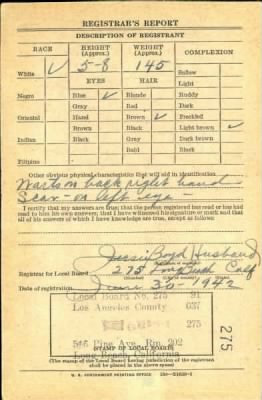 REGISTRAR'S REPORT
DESCRIPTION OF REGISTRANT
RACE HEIGHT (Approx.) WEIGHT (Approx.) COMPLEXION
White ✓ 5-8 145 Sallow
EYES HAIR Light
Negro Blue ✓ Blonde Ruddy
Gray Red Dark
Oriental Hazel Brown ✓ Freckled
Brown Black Light brown ✓
Indian Black Gray Dark brown
Bald Black
Filipino
Other obvious physical characteristics that will aid in identification
Warts on back right hand
Scar - on left eye -
I certify that my answers are true; that the person registered has read or has had
read to him his own answers; that I have witnessed his signature or mark and that
all of his answers of which I have knowledge are true, except as follows:
Jessie Boyd Husband
Registrar for Local Board 275 Long Beach Calif
Date of registration June 30 - 1942
Local Board No. 275 91
Los Angeles County 037
275
546 Pine Ave. Rm. 202
(STAMP OF LOCAL BOARD)
Long Beach, California
(The stamp of the Local Board having jurisdiction of the registrant
shall be placed in the above space.)
U. S. GOVERNMENT PRINTING OFFICE
275